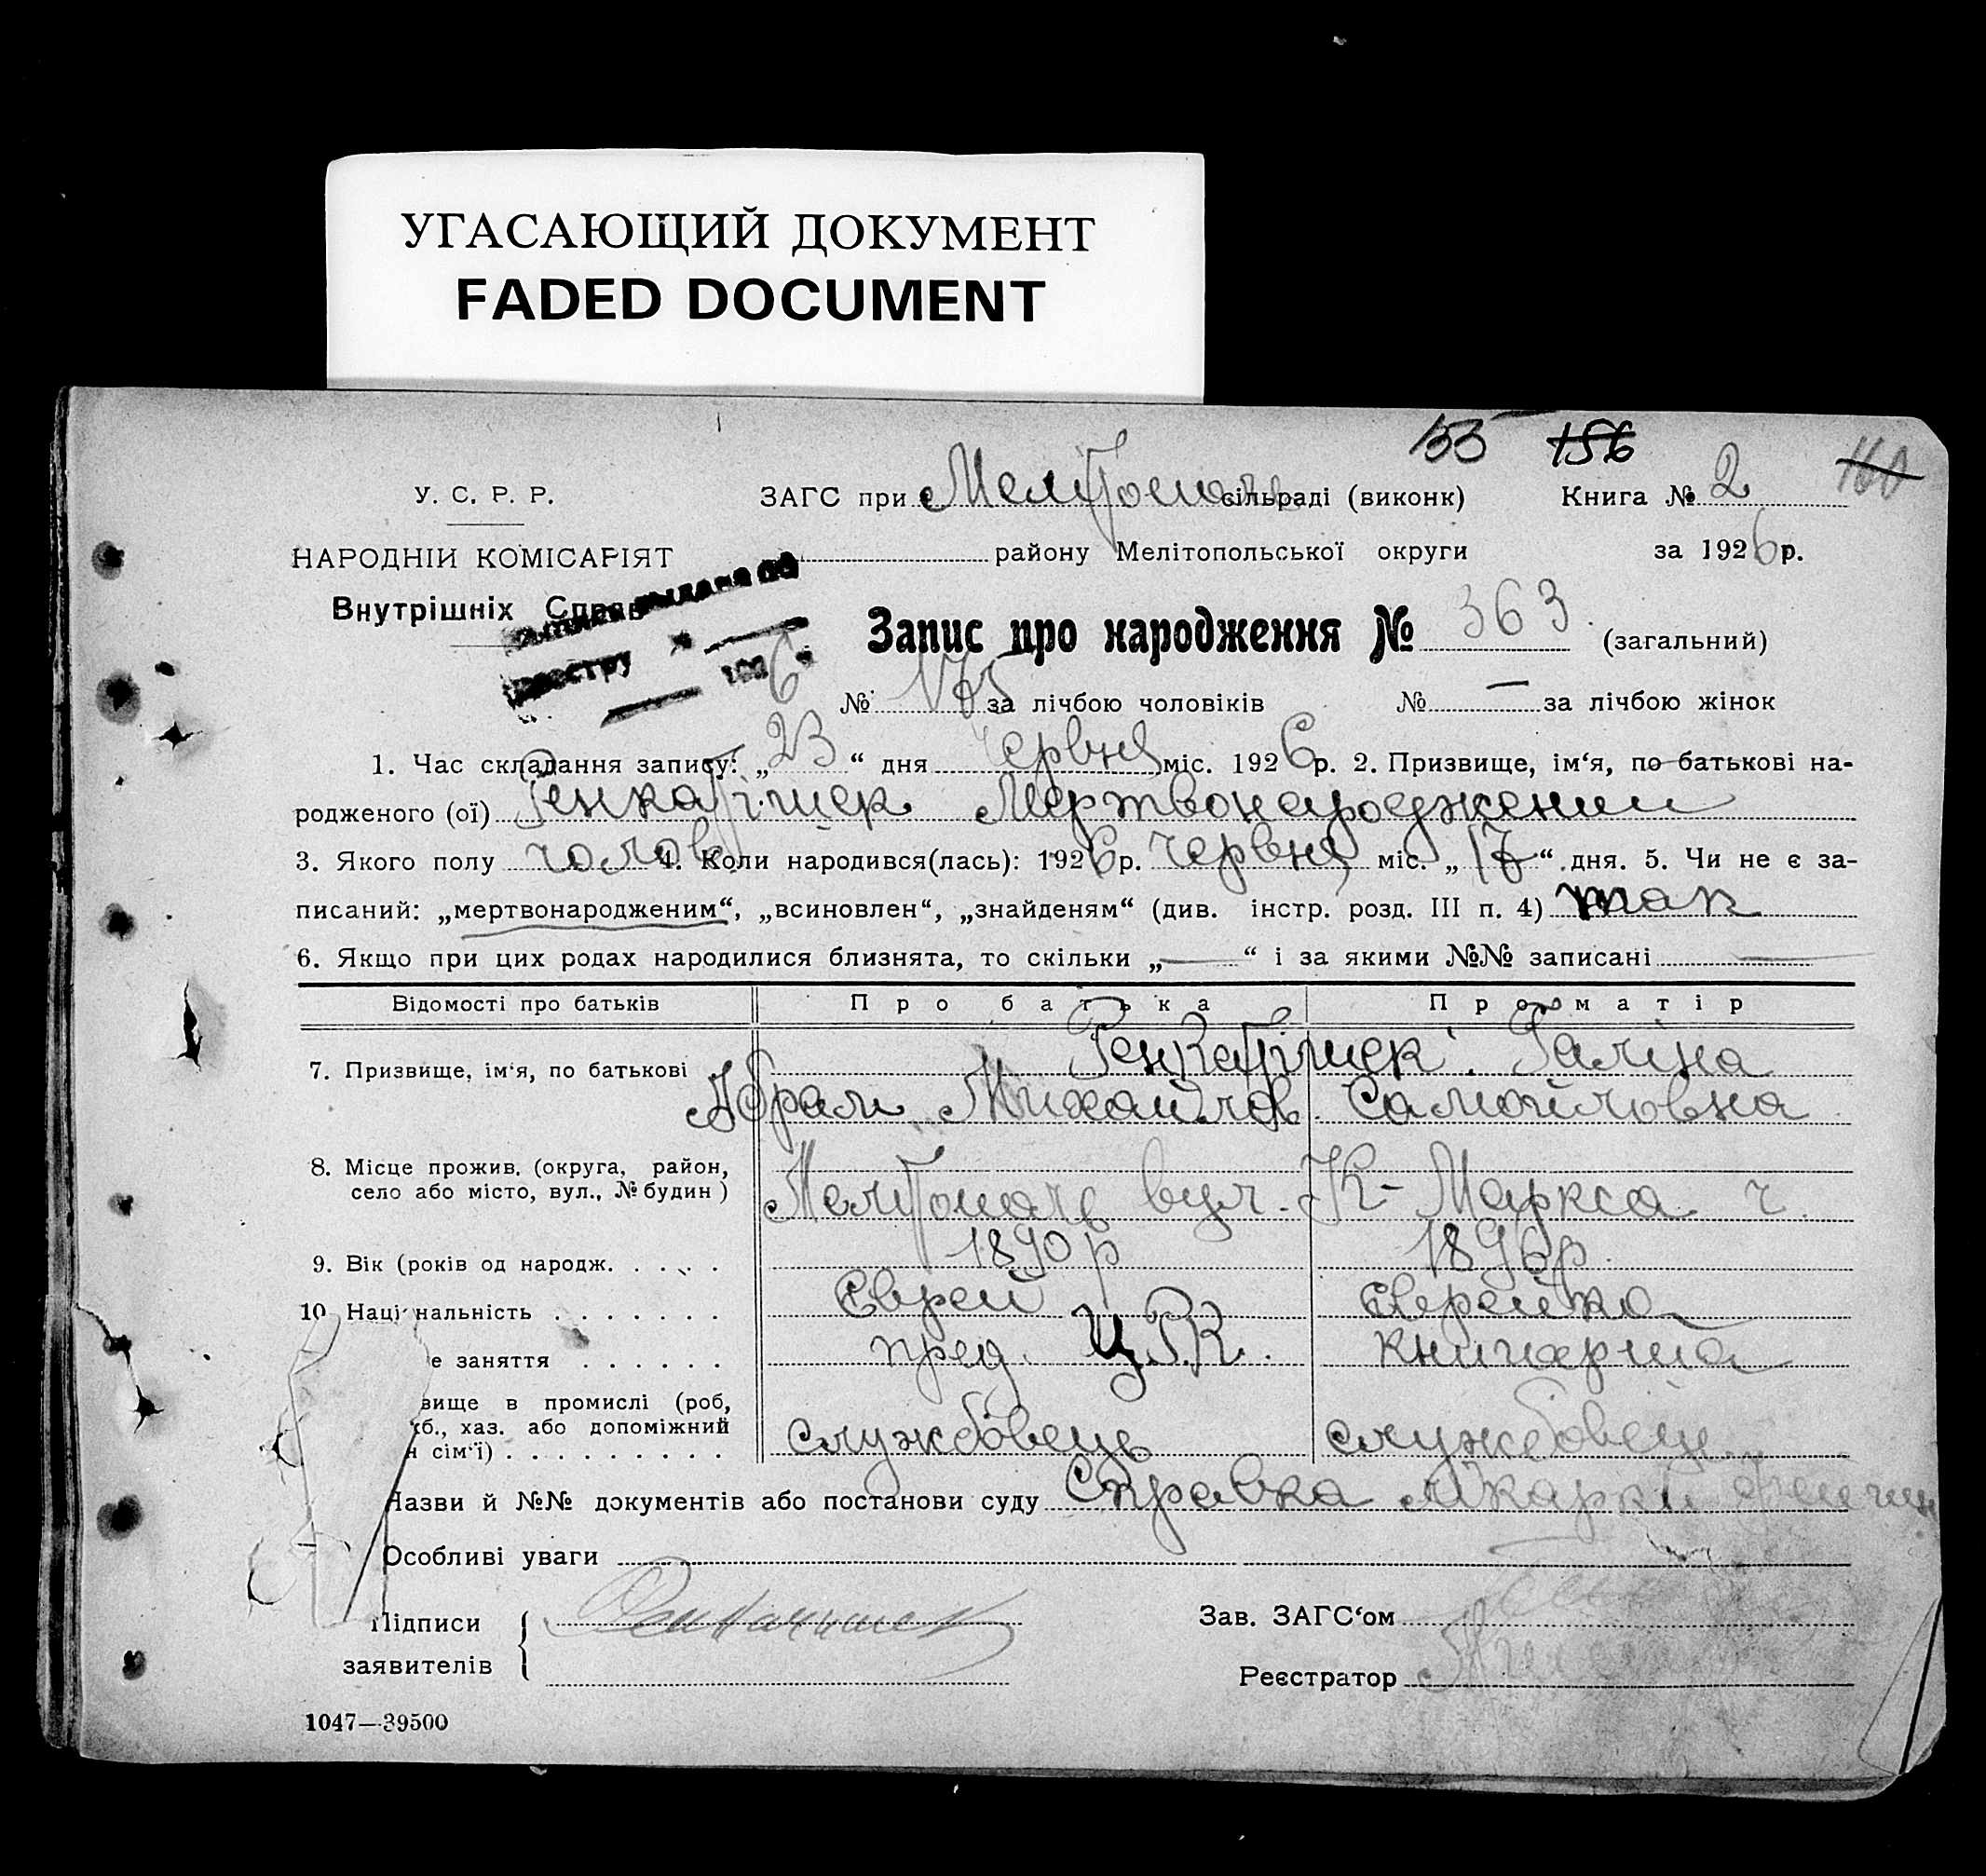 УГАСАЮЩИЙ ДОКУМЕНТ
FADED DOCUMENT
153 156 160
У. С. Р. Р. ЗАГС при Мелітополь сільраді (виконк) Книга № 2
НАРОДНІЙ КОМІСАРІЯТ району Мелітопольської округи за 1926 р.
Внутрішніх Справ
Запис про народження № 363 (загальний)
реестру № 1926
№ 175 за лічбою чоловіків № — за лічбою жінок
1. Час складання запису: „23“ дня червня міс. 1926 р. 2. Призвище, ім‘я, по батькові на-
родженого (ої) Мертвонароджений
3. Якого полу чолов 4. Коли народився(лась): 1926 р. червня міс. „17“ дня. 5. Чи не є за-
писаний: „мертвонародженим“, „всиновлен“, „знайденям“ (див. інстр. розд. III п. 4) так
6. Якщо при цих родах народилися близнята, то скільки „—“ і за якими №№ записані —
Відомості про батьків Про батька Про матір
7. Призвище, ім‘я, по батькові Галіна
Абрам Михайлов Самойловна
8. Місце прожив. (округа, район,
село або місто, вул., № будин) Мелітополь вул. К-Маркса ч.
9. Вік (років од народж. . . . . 1890 р 1896 р.
10. Національність . . . . . . . Єврей Єврейка
е заняття . . . . . . пред.
вище в промислі (роб,
б., хаз. або допоміжний
н сім‘ї) . . . . . . . . . службовець службовець
Назви й №№ документів або постанови суду Справка лікарки
Особливі уваги
Підписи
заявителів
Зав. ЗАГС‘ом
Реєстратор
1047—39500